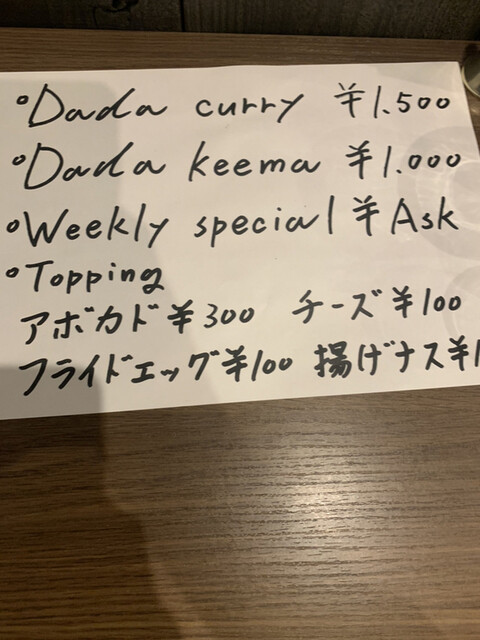 °Dada curry ¥1.500
°Dada keema ¥1.000
°Weekly special ¥Ask
°Topping
アボカド¥300 チーズ¥100
フライドエッグ¥100 揚げナス¥1